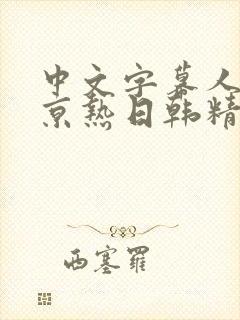 中文字幕人
京热日韩精
西塞羅